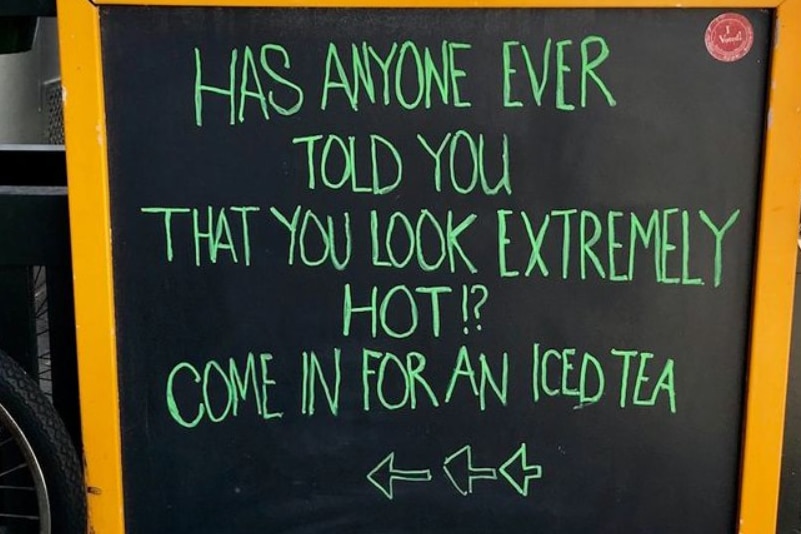 HAS ANYONE EVER
TOLD YOU
THAT YOU LOOK EXTREMELY
HOT!?
COME IN FOR AN ICED TEA